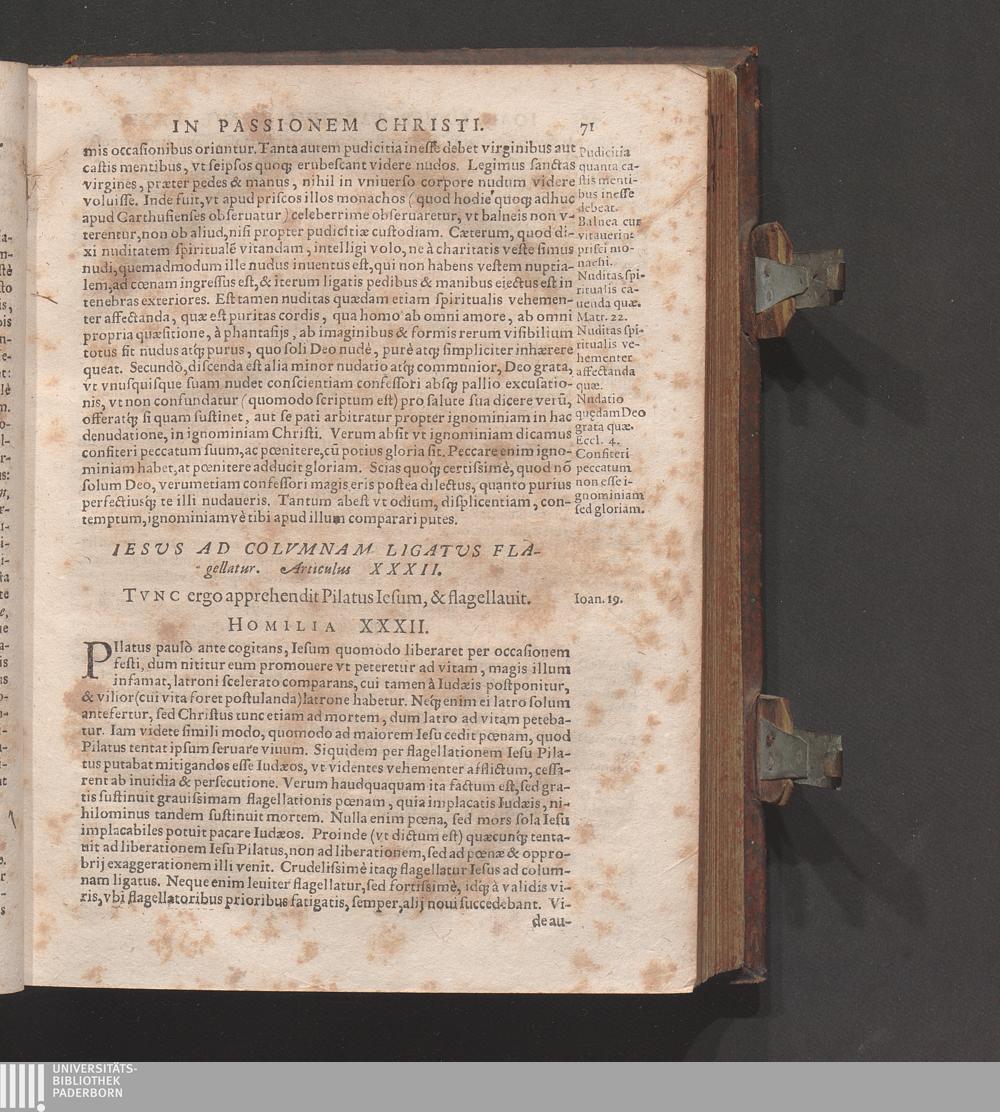 IN PASSIONEM CHRISTI. 71
mis occasionibus oriuntur. Tanta autem pudicitia inesse debet virginibus aut
castis mentibus, vt seipsos quoq; erubescant videre nudos. Legimus sanctas
virgines, præter pedes & manus, nihil in vniuerso corpore nudum videre
voluisse. Inde fuit, vt apud priscos illos monachos (quod hodie quoq; adhuc
apud Carthusienses obseruatur) celeberrime obseruaretur, vt balneis non v-
terentur, non ob aliud, nisi propter pudicitiæ custodiam. Cæterum, quod di-
xi nuditatem spiritualẽ vitandam, intelligi volo, ne à charitatis veste simus
nudi, quemadmodum ille nudus inuentus est, qui non habens vestem nuptia-
lem, ad cœnam ingressus est, & iterum ligatis pedibus & manibus eiectus est in
tenebras exteriores. Est tamen nuditas quædam etiam spiritualis vehemen-
ter affectanda, quæ est puritas cordis, qua homo ab omni amore, ab omni
propria quæsitione, à phantasijs, ab imaginibus & formis rerum visibilium
totus sit nudus atq; purus, quo soli Deo nudè, purè atq; simpliciter inhærere
queat. Secundò, discenda est alia minor nudatio atq; communior, Deo grata,
vt vnusquisque suam nudet conscientiam confessori absq; pallio excusatio-
nis, vt non confundatur (quomodo scriptum est) pro salute sua dicere verũ,
offeratq; si quam sustinet, aut se pati arbitratur propter ignominiam in hac
denudatione, in ignominiam Christi. Verum absit vt ignominiam dicamus
confiteri peccatum suum, ac pœnitere, cũ potius gloria sit. Peccare enim igno-
miniam habet, at pœnitere adducit gloriam. Scias quoq; certissimè, quod nõ
solum Deo, verumetiam confessori magis eris postea dilectus, quanto purius
perfectiusq; te illi nudaueris. Tantum abest vt odium, displicentiam, con-
temptum, ignominiamvè tibi apud illum comparari putes.
Pudicitia
quanta ca-
stis menti-
bus inesse
debeat.
Balnea cur
vitauerint
prisci mo-
nachi.
Nuditas spi-
ritualis ca-
uenda quæ.
Matt. 22.
Nuditas spi-
ritualis ve-
hementer
affectanda
quæ.
Nudatio
quędam Deo
grata quæ.
Eccl. 4.
Confiteri
peccatum
non esse i-
gnominiam
sed gloriam.
IESVS AD COLVMNAM LIGATVS FLA-
gellatur. Articulus XXXII.
TVNC ergo apprehendit Pilatus Iesum, & flagellauit. Ioan. 19.
HOMILIA XXXII.
PIlatus paulò ante cogitans, Iesum quomodo liberaret per occasionem
festi, dum nititur eum promouere vt peteretur ad vitam, magis illum
infamat, latroni scelerato comparans, cui tamen à Iudæis postponitur,
& vilior (cui vita foret postulanda) latrone habetur. Neq; enim ei latro solum
antefertur, sed Christus tunc etiam ad mortem, dum latro ad vitam peteba-
tur. Iam videte simili modo, quomodo ad maiorem Iesu cedit pœnam, quod
Pilatus tentat ipsum seruare viuum. Siquidem per flagellationem Iesu Pila-
tus putabat mitigandos esse Iudæos, vt videntes vehementer afflictum, cessa-
rent ab inuidia & persecutione. Verum haudquaquam ita factum est, sed gra-
tis sustinuit grauissimam flagellationis pœnam, quia implacatis Iudæis, ni-
hilominus tandem sustinuit mortem. Nulla enim pœna, sed mors sola Iesu
implacabiles potuit pacare Iudæos. Proinde (vt dictum est) quæcunq; tenta-
uit ad liberationem Iesu Pilatus, non ad liberationem, sed ad pœnæ & oppro-
brij exaggerationem illi venit. Crudelissimè itaq; flagellatur Iesus ad colum-
nam ligatus. Neque enim leuiter flagellatur, sed fortissimè, idq; à validis vi-
ris, vbi flagellatoribus prioribus fatigatis, semper, alij noui succedebant. Vi-
de au-
UNIVERSITÄTS-
BIBLIOTHEK
PADERBORN